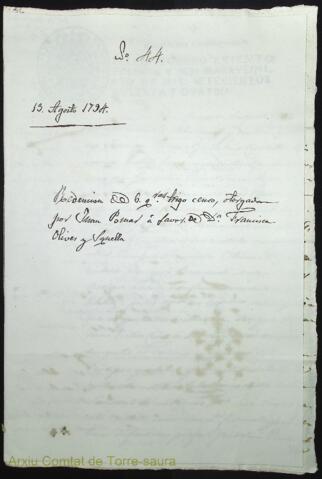 Nº 44.
13. Agosto 1794.
Redencion de 6 qnes trigo censo, otorgada
por Juan Pomar á favor de Dn. Francisco
Olives y Squella
Arxiu Comtat de Torre-saura